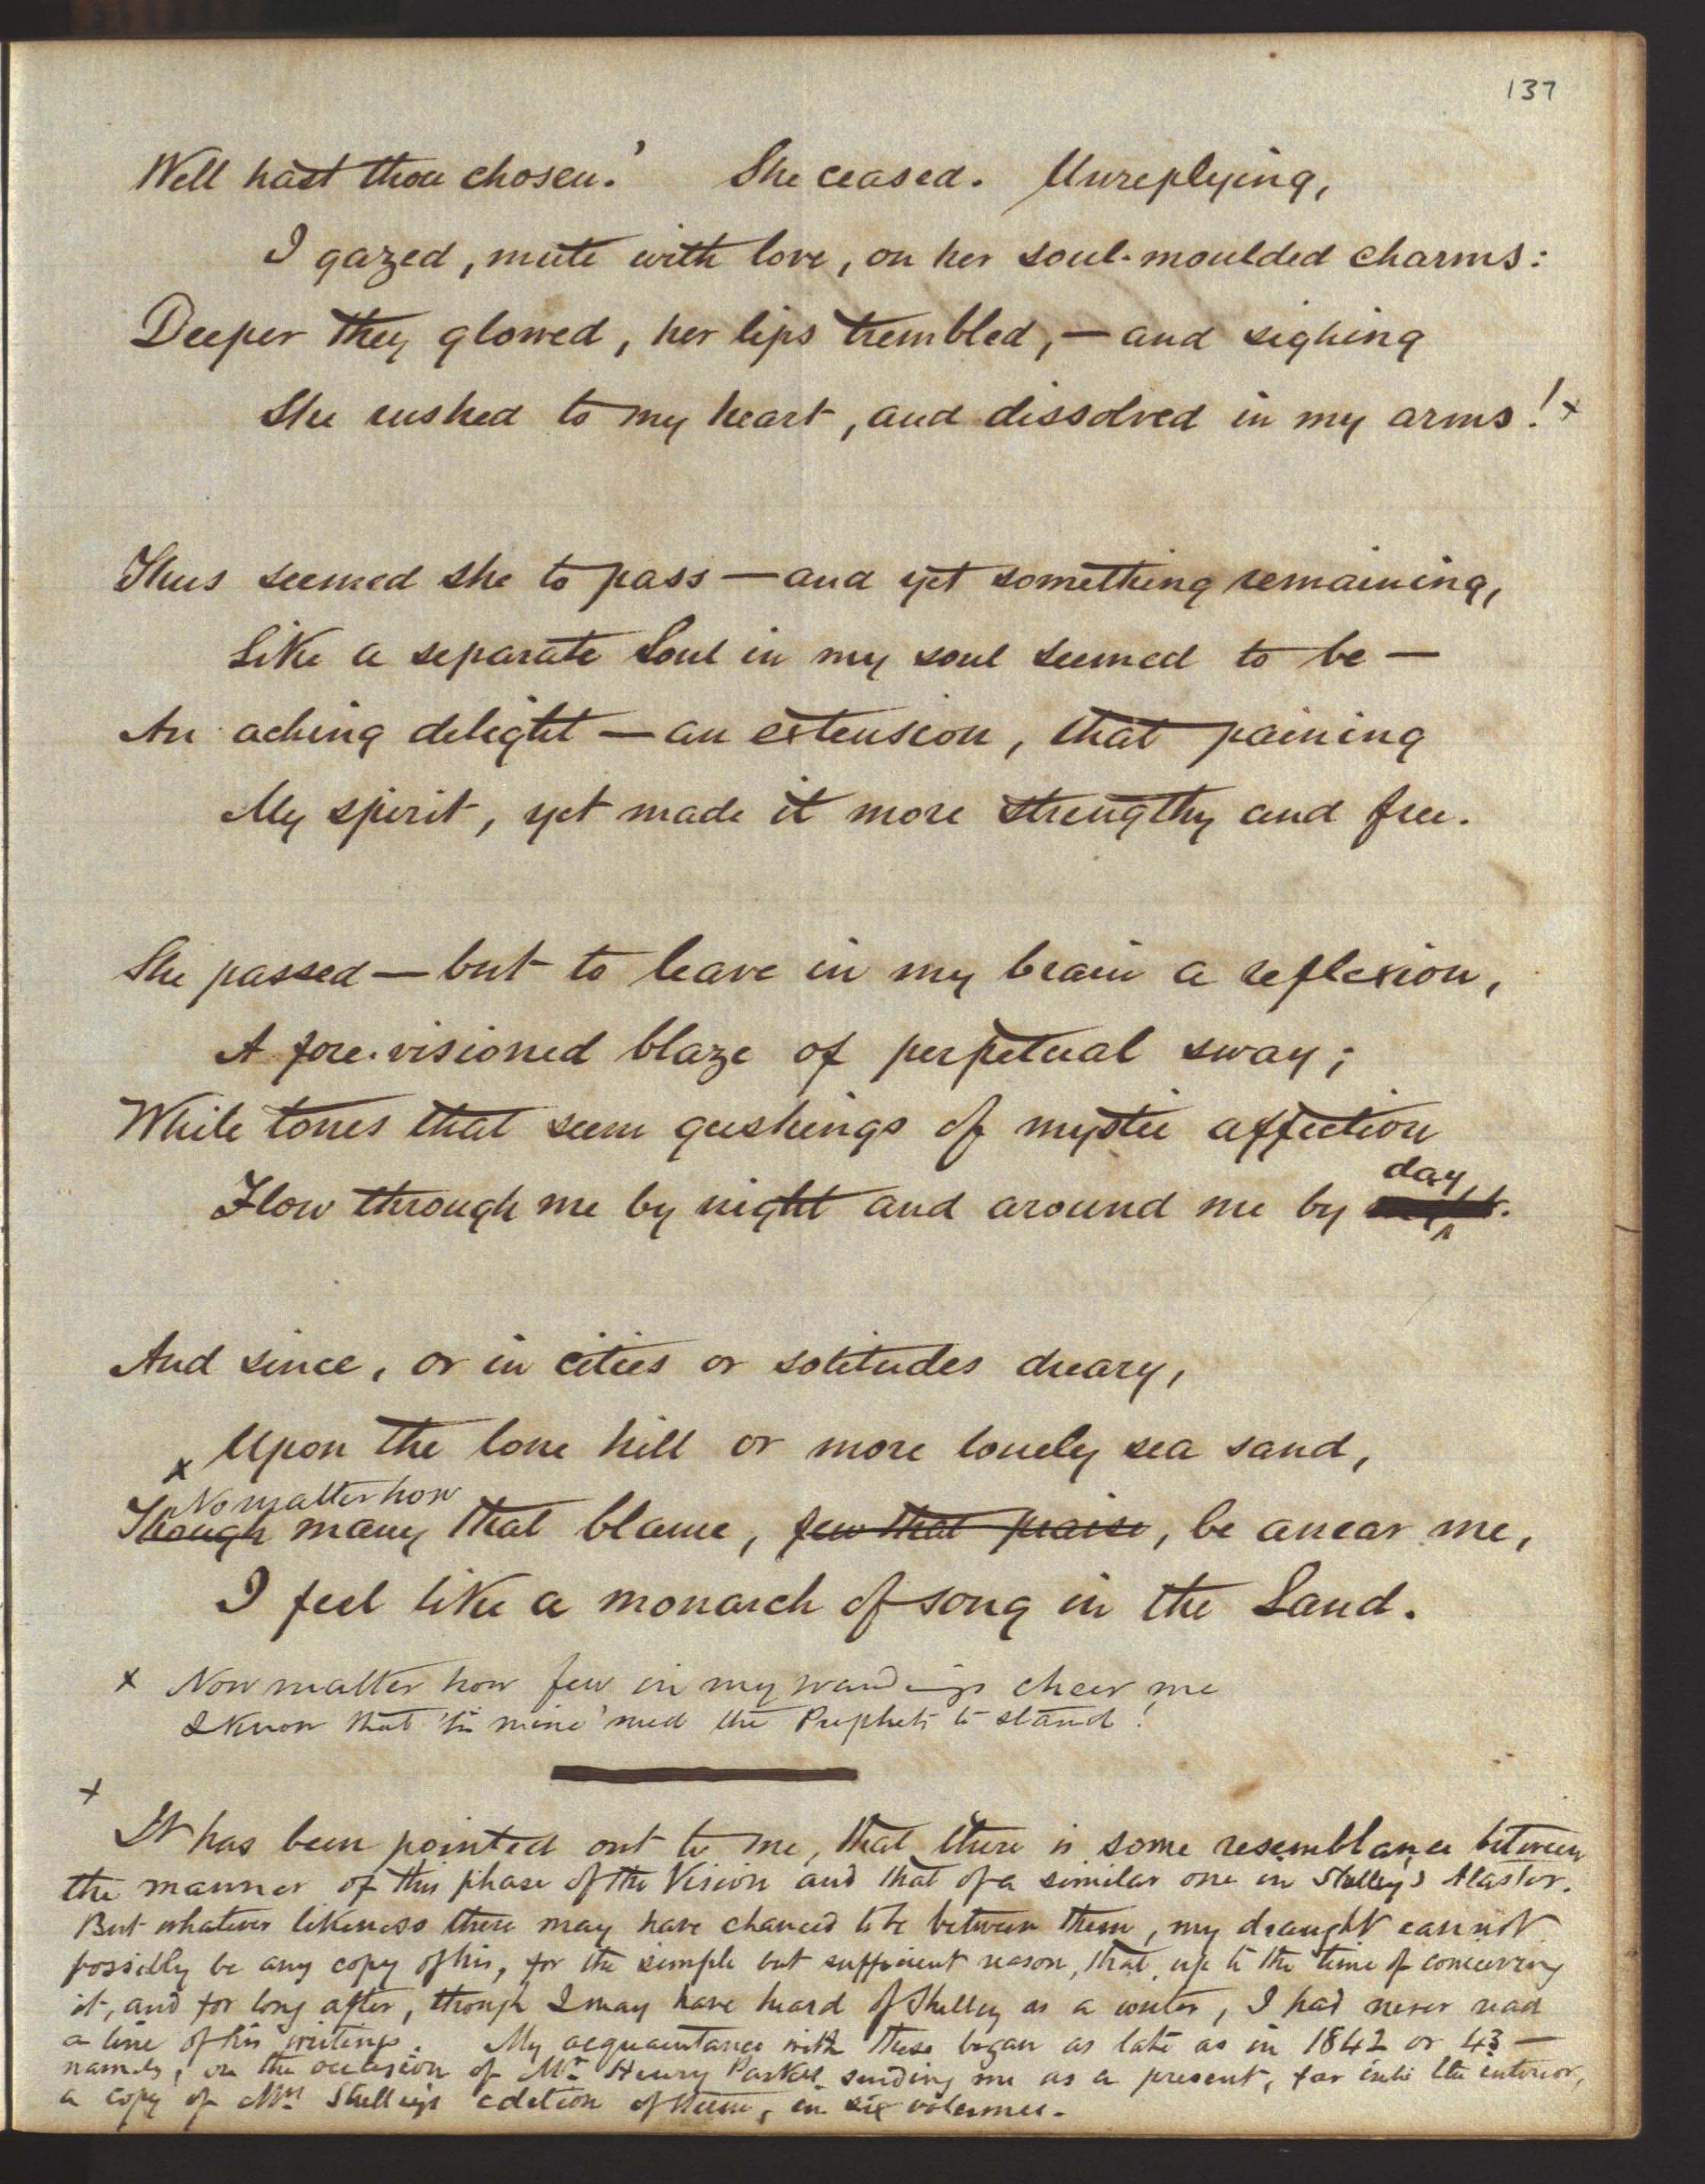 137
Well hast thou chosen.' She ceased. Unreplying,
I gazed, mute with love, on her soul-moulded charms:
Deeper they glowed, her lips trembled, — and sighing
She rushed to my heart, and dissolved in my arms! x
Thus seemed she to pass — and yet something remaining,
Like a separate Soul in my soul seemed to be —
An aching delight — an extension, that paining
My spirit, yet made it more strengthy and free.
She passed — but to leave in my brain a reflexion,
A fore-visioned blaze of perpetual sway;
While tones that seem gushings of mystic affection
day
Flow through me by night and around me by
And since, or in cities or solitudes dreary,
x Upon the lone hill or more lonely sea sand,
No matter how
Though many that blame, few that praise, be anear me,
I feel like a monarch of song in the Land.
x Now matter how few in my wand-ings cheer me
I know that 'tis mine 'mid the Prophets to stand!
x
It has been pointed out to me, that there is some resemblance between
the manner of this phase of the Vision and that of a similar one in Shelley's Alastor.
But whatever likeness there may have chanced to be between them, my draught cannot
possibly be any copy of his, for the simple but sufficient reason, that, up to the time of conceiving
it, and for long after, though I may have heard of Shelley as a writer, I had never read
a line of his writings. My acquaintance with these began as late as in 1842 or 43 —
namely, on the occasion of Mr Henry Parkes sending me as a present, far into the interior,
a copy of Mrs Shelley's edition of them, in six volumes.